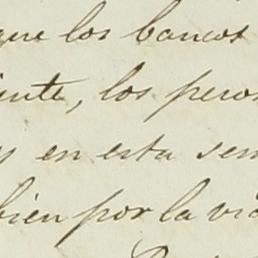 que los bancos
los pesos
en esta sem
bien por la vi